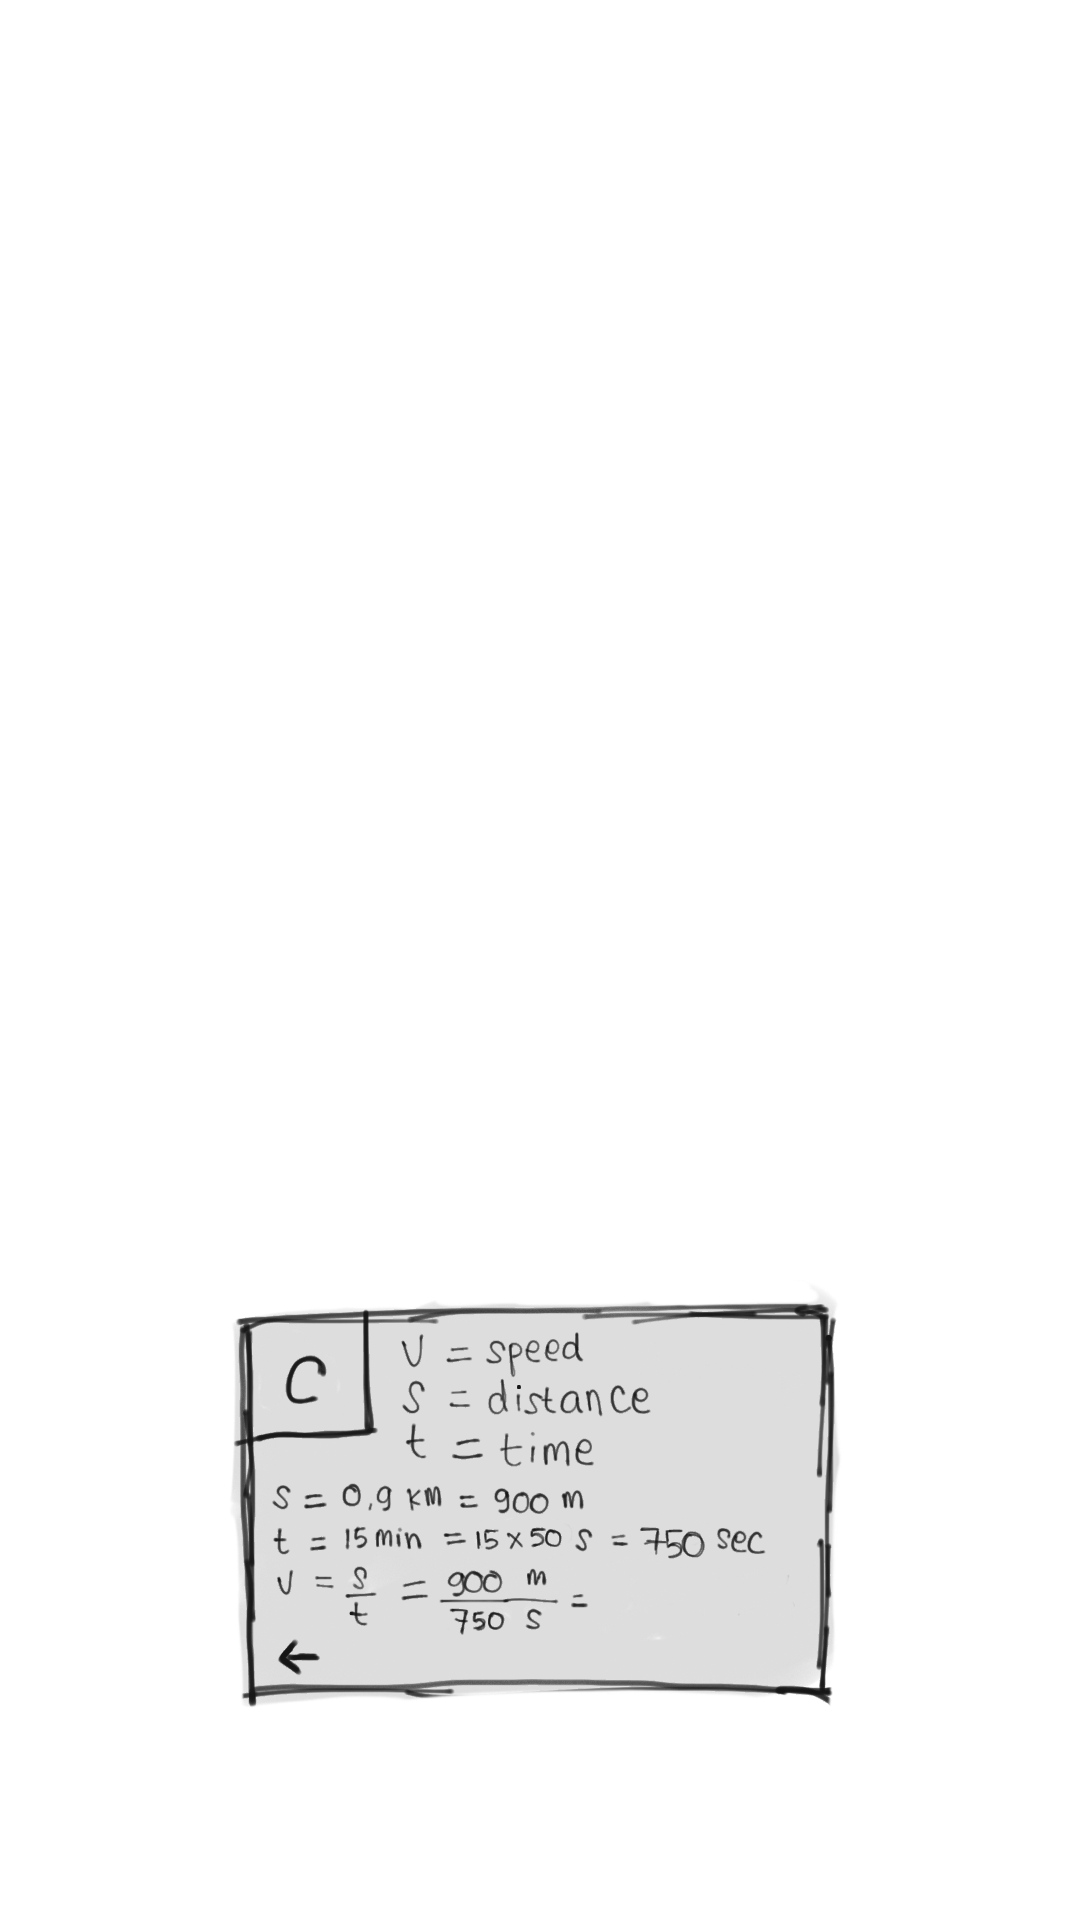 C
v = speed
s = distance
t = time
s = 0,9 km = 900 m
t = 15 min = 15 x 50 s = 750 sec
v = s/t = 900 m/750 s =
←